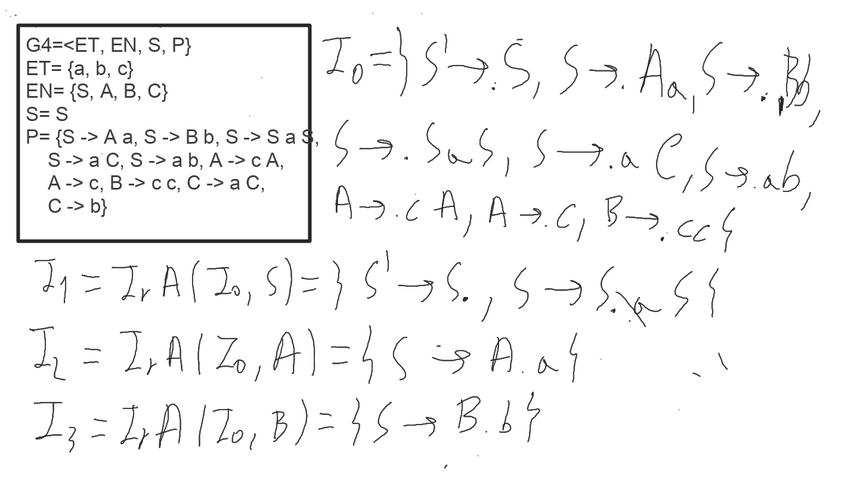 G4=<ET, EN, S, P}
ET= {a, b, c}
EN= {S, A, B, C}
S= S
P= {S -> A a, S -> B b, S -> S a S,
S -> a C, S -> a b, A -> c A,
A -> c, B -> c c, C -> a C,
C -> b}
I₀={ S' → . S, S → . A a, S → . B b,
S → . S a S, S → . a C, S → . a b,
A → . c A, A → . c, B → . c c }
I₁ = Ir A ( I₀, S ) = { S' → S . , S → S . a S }
I₂ = Ir A ( I₀, A ) = { S → A . a }
I₃ = Ir A ( I₀, B ) = { S → B . b }